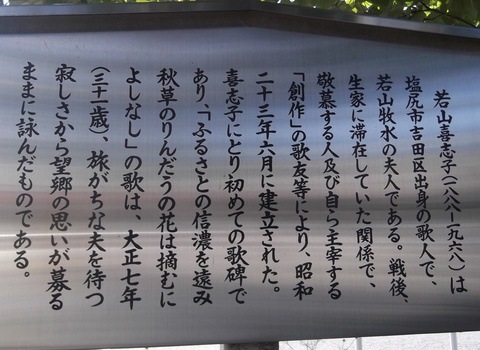 若山喜志子(一八八八―一九六八)は
塩尻市吉田区出身の歌人で、
若山牧水の夫人である。戦後、
生家に滞在していた関係で、
敬慕する人及び自ら主宰する
「創作」の歌友等により、昭和
二十三年六月に建立された。
喜志子にとり初めての歌碑で
あり、「ふるさとの信濃を遠み
秋草のりんだうの花は摘むに
よしなし」の歌は、大正七年
(三十一歳)、旅がちな夫を待つ
寂しさから望郷の思いが募る
ままに詠んだものである。